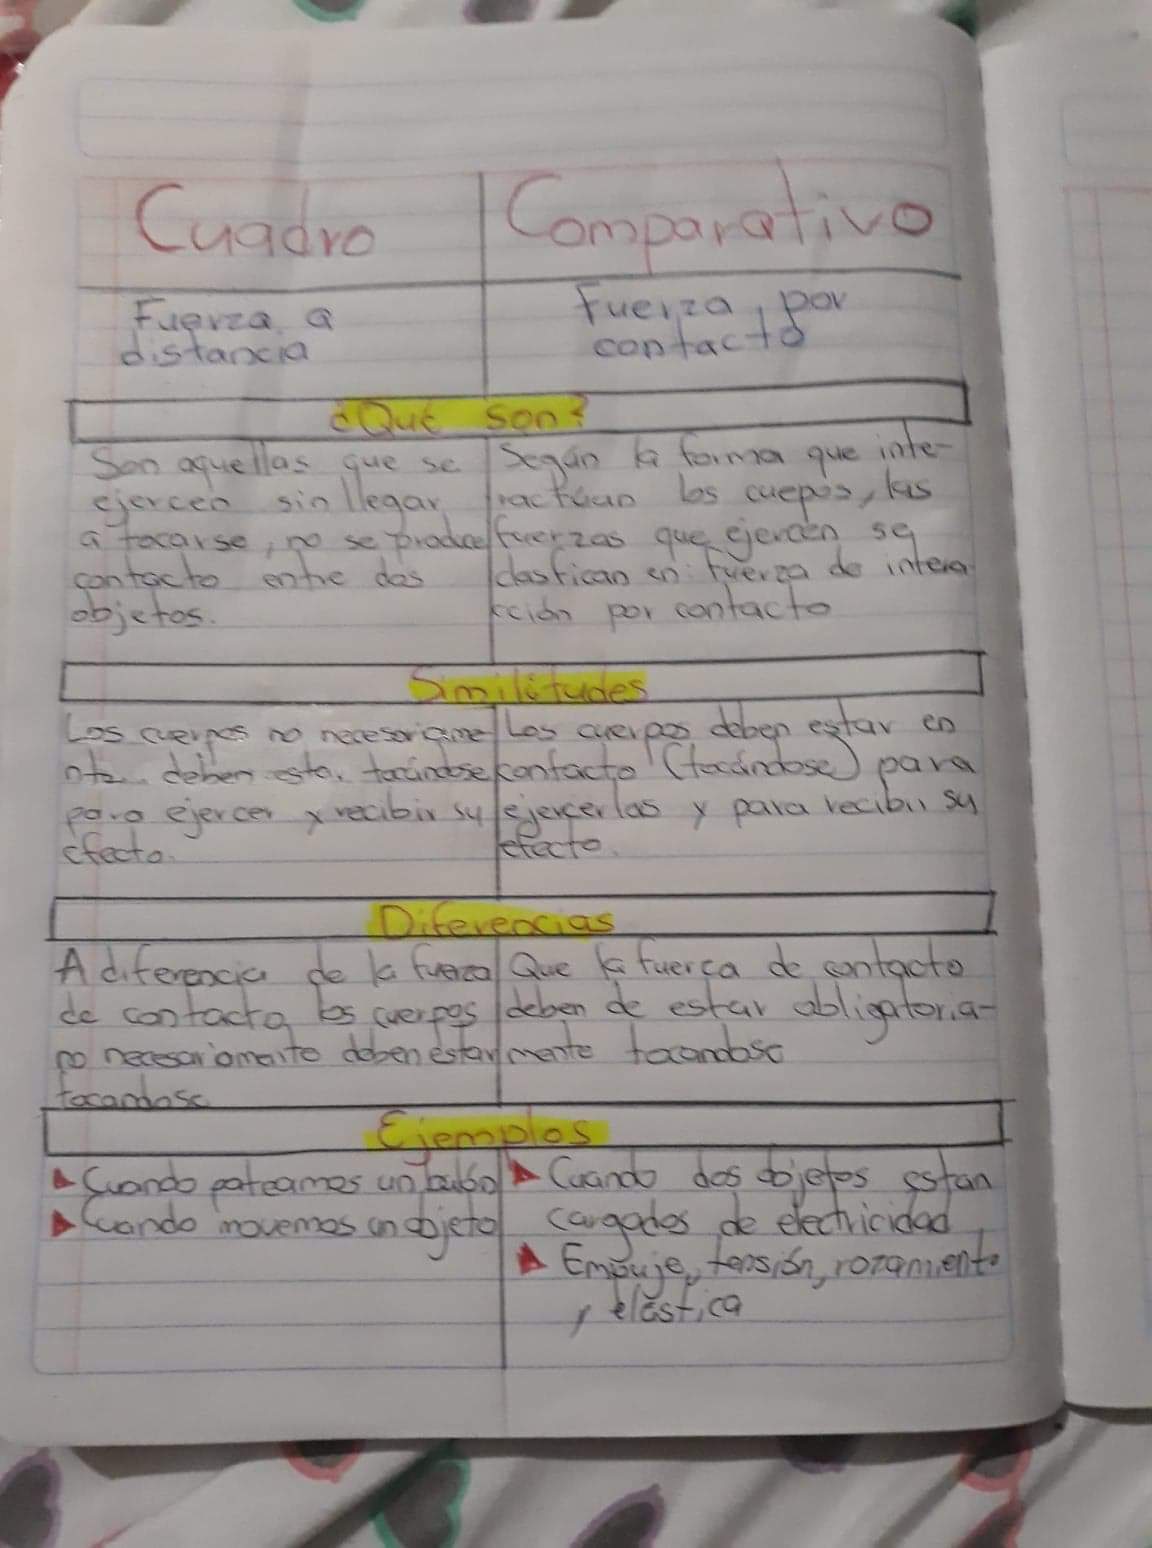 Cuadro Comparativo
Fuerza a
distancia
Fuerza por
contacto
¿Qué son?
Son aquellas que se
ejercen sin llegar
a tocarse, no se produce
contacto entre dos
objetos.
Según la forma que inte-
ractúan los cuepos, las
fuerzas que ejercen se
clasfican en: fuerza de intera
cción por contacto
Similitudes
Los cuerpos no necesariame
nte deben estar tocándose
para ejercer y recibir su
efecto.
Los cuerpos deben estar en
contacto (tocándose) para
ejercerlas y para recibir su
efecto.
Diferencias
A diferencia de la fuerza
de contacto los cuerpos
no necesariamente deben estar
tocandose
Que la fuerça de contacto
deben de estar obligatoria-
mente tocandose
Ejemplos
Cuando pateamos un
Cuando movemos un objeto
Cuando dos objetos estan
cargados de electricidad
Empuje, tensión, rozamiento
y elástica